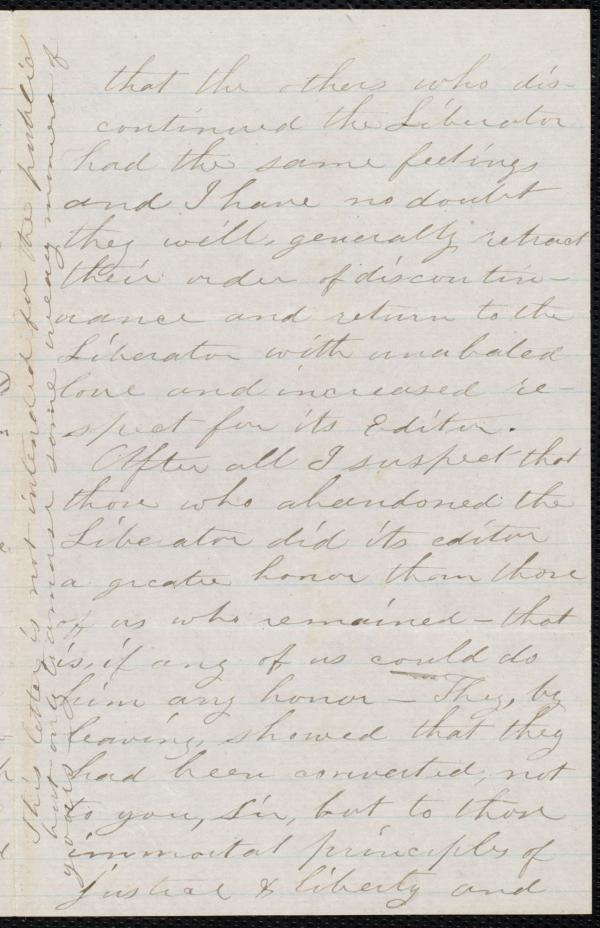 that the others who dis-
continued the Liberator
had the same feelings
and I have no doubt
they will, generally retract
their order of discontin-
uance and return to the
Liberator with unabated
love and increased re-
spect for its Editor.
After all I suspect that
those who abandoned the
Liberator did its editor
a greater honor than those
of us who remained - that
is, if any of us could do
him any honor - They, by
leaving, showed that they
had been converted, not
to you, Sir, but to those
immortal principles of
justice & liberty and
This letter is not intended for the public
but only to amuse some weary moment of
yours